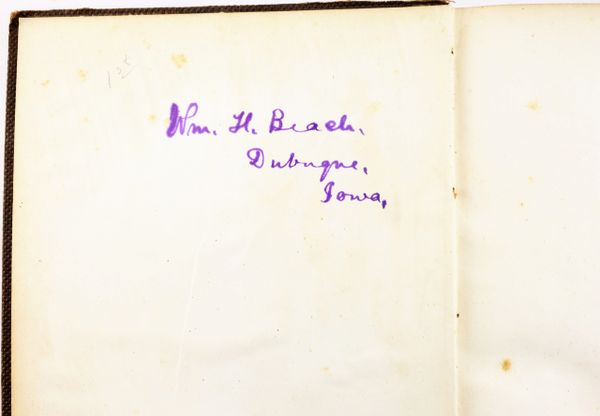 1st
Wm. H. Beach.
Dubuque,
Iowa,